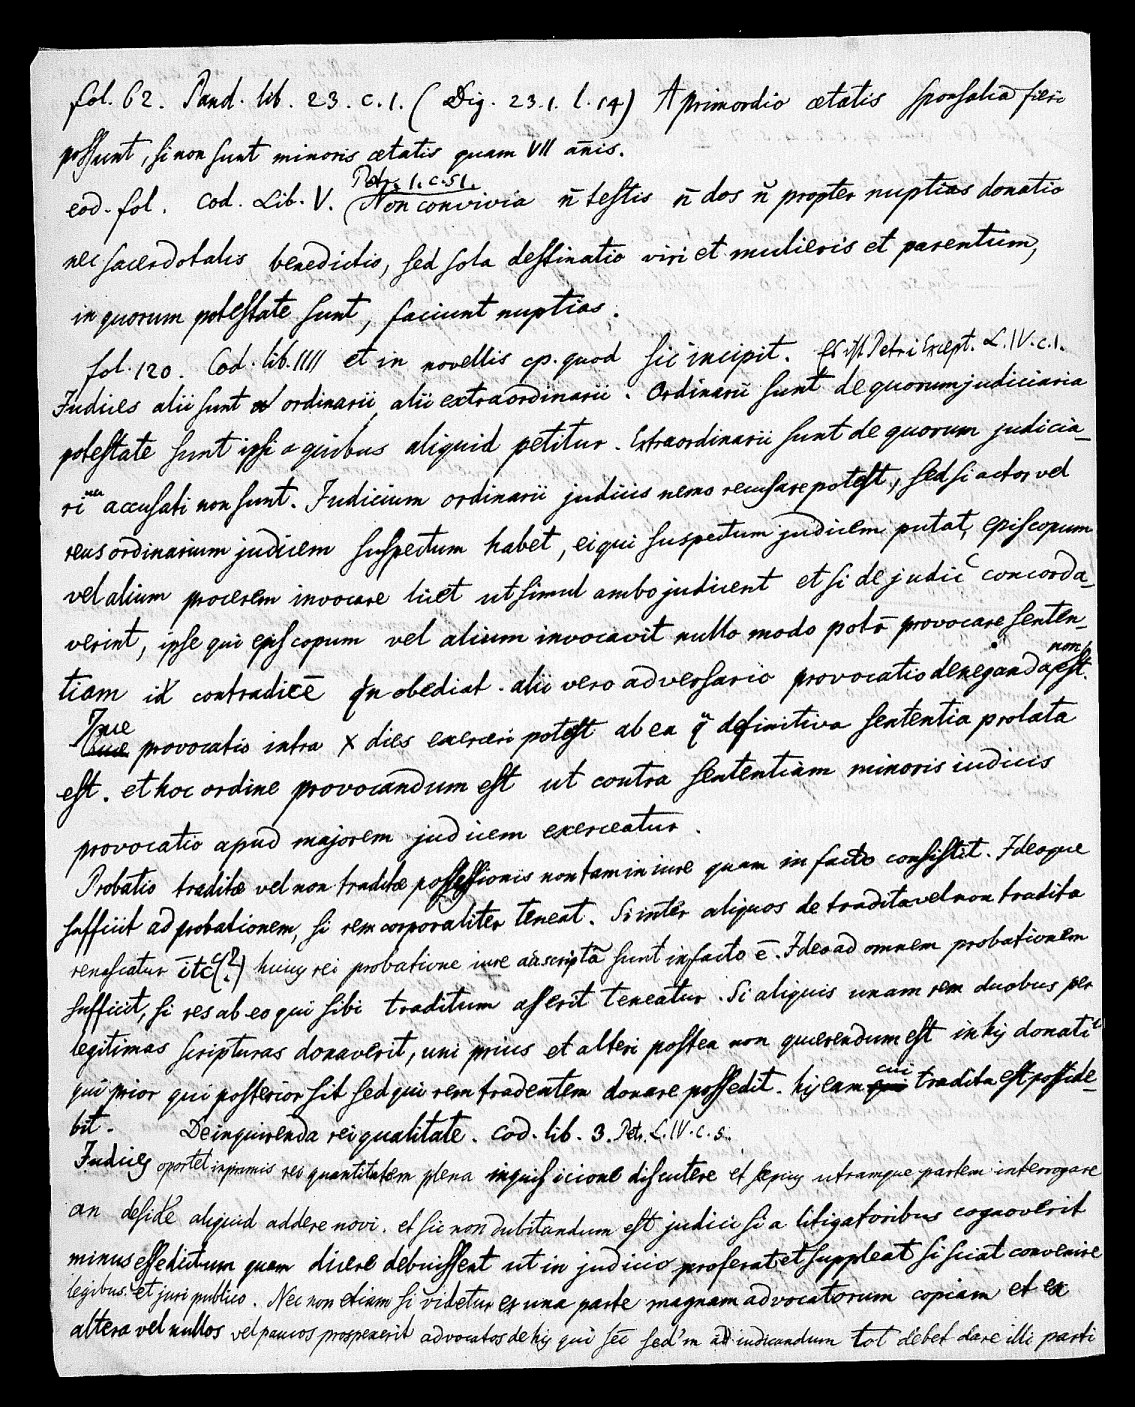 fol. 62. Pand. lib. 23. c. 1. ( Dig. 23. 1. l. 14) A primordio ætatis sponsalia fieri
possunt, si non sunt minoris ætatis quam VII añis.
Petr. 1. c. 51.
eod. fol. Cod. Lib. V. (Non convivia n̄ testis n̄ dos n̄ propter nuptias donatio
nec sacerdotalis benedictio, sed sola destinatio viri et mulieris et parentum,
in quorum potestate sunt, faciunt nuptias.
fol. 120. Cod. lib. IIII et in novellis cp. quod sic incipit. Es ist Petri Except. L. IV. c. 1.
Judices alii sunt ordinarii, alii extraordinarii. Ordinarii sunt de quorum judiciaria
potestate sunt ipsi a quibus aliquid petitur. Extraordinarii sunt de quorum judicia-
ria accusati non sunt. Judicium ordinarii judicis nemo recusare potest, sed si actor vel
reus ordinarium judicem suspectum habet, ei qui suspectum judicem putat, episcopum
vel alium procerem invocare licet ut simul ambo judicent et si de judic concorda-
verint, ipse qui episcopum vel alium invocavit nullo modo potr̄ provocare senten-
tiam id contradicē obediat. alii vero adversario provocatio deneganda non est.
Que provocatio infra X dies exerceri potest ab ea q̄ definitiva sententia prolata
est. et hoc ordine provocandum est ut contra sententiam minoris iudicis
provocatio apud majorem judicem exerceatur.
Probatio traditæ vel non traditæ possessionis non tam in iure quam in facto consistit. Ideoque
sufficit ad probationem, si rem corporaliter teneat. Si inter aliquos de tradita vel non tradita
re nascatur itc(?) huius rei probatione iure sunt in facto ē. Ideo ad omnem probationem
sufficit, si res ab eo qui sibi traditum asserit teneatur. Si aliquis unam rem duobus per
legitimas scripturas donaverit, uni prius et alteri postea non querendum est in hij donati
qui prior qui posterior sit sed qui rem tradentem donare possedit. hij eam cui tradita est posside-
bit. De inquirenda rei qualitate. Cod. lib. 3. Petr. L. IV. c. 5.
Judices oportet inprimis rei quantitatem plena inquisicione discutere et sepius utramque partem interrogare
an aliquid addere novi. et sic non dubitandum est judici si a litigatoribus cognoverit
minus esse dictum quam dicere debuissent ut in judicio proferat et suppleat si sciat convenire
legibus et juri publico. Nec non etiam si videtur ex una parte magnam advocatorum copiam et ex
altera vel nullos vel paucos prospexerit advocatos de hij qui sed'm ad iudicandum tot debet dare illi parti